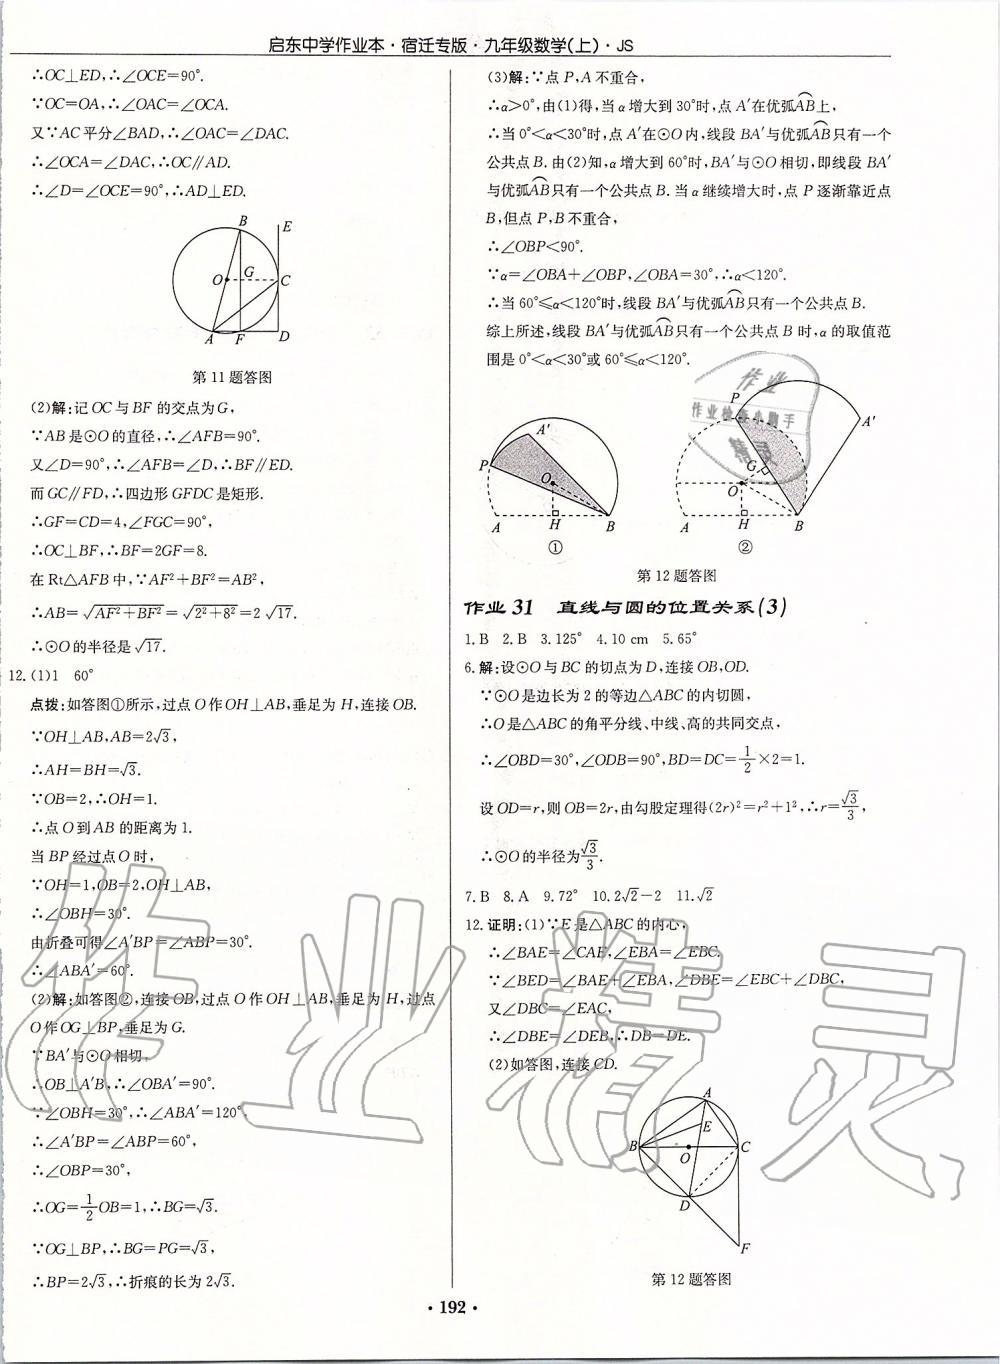 启东中学作业本·宿迁专版·九年级数学(上)·JS
∴OC⊥ED,∴∠OCE=90°.
∵OC=OA,∴∠OAC=∠OCA.
又∵AC平分∠BAD,∴∠OAC=∠DAC.
∴∠OCA=∠DAC,∴OC∥AD.
∴∠D=∠OCE=90°,∴AD⊥ED.
B E
O G C
A F D
第11题答图
(2)解:记OC与BF的交点为G,
∵AB是⊙O的直径,∴∠AFB=90°.
又∠D=90°,∴∠AFB=∠D,∴BF∥ED.
而GC∥FD,∴四边形GFDC是矩形.
∴GF=CD=4,∠FGC=90°,
∴OC⊥BF,∴BF=2GF=8.
在Rt△AFB中,∵AF²+BF²=AB²,
∴AB=√(AF²+BF²)=√(2²+8²)=2√17.
∴⊙O的半径是√17.
12.(1)1 60°
点拨:如答图①所示,过点O作OH⊥AB,垂足为H,连接OB.
∵OH⊥AB,AB=2√3,
∴AH=BH=√3.
∵OB=2,∴OH=1.
∴点O到AB的距离为1.
当BP经过点O时,
∵OH=1,OB=2,OH⊥AB,
∴∠OBH=30°.
由折叠可得∠A′BP=∠ABP=30°.
∴∠ABA′=60°.
(2)解:如答图②,连接OB,过点O作OH⊥AB,垂足为H,过点
O作OG⊥BP,垂足为G.
∵BA′与⊙O相切,
∴OB⊥A′B,∴∠OBA′=90°.
∵∠OBH=30°,∴∠ABA′=120°.
∴∠A′BP=∠ABP=60°,
∴∠OBP=30°,
∴OG=1/2OB=1,∴BG=√3.
∵OG⊥BP,∴BG=PG=√3,
∴BP=2√3,∴折痕的长为2√3.
(3)解:∵点P,A不重合,
∴α>0°,由(1)得,当α增大到30°时,点A′在优弧AB上,
∴当0°<α<30°时,点A′在⊙O内,线段BA′与优弧AB只有一个
公共点B.由(2)知,α增大到60°时,BA′与⊙O相切,即线段BA′
与优弧AB只有一个公共点B.当α继续增大时,点P逐渐靠近点
B,但点P,B不重合,
∴∠OBP<90°.
∵α=∠OBA+∠OBP,∠OBA=30°,∴α<120°.
∴当60°≤α<120°时,线段BA′与优弧AB只有一个公共点B.
综上所述,线段BA′与优弧AB只有一个公共点B时,α的取值范
围是0°<α<30°或60°≤α<120°.
作业
作业检查小助手
精灵
P A′ O A H B
①
P A′ G O A H B
②
第12题答图
作业31 直线与圆的位置关系(3)
1.B 2.B 3.125° 4.10 cm 5.65°
6.解:设⊙O与BC的切点为D,连接OB,OD.
∵⊙O是边长为2的等边△ABC的内切圆,
∴O是△ABC的角平分线、中线、高的共同交点,
∴∠OBD=30°,∠ODB=90°,BD=DC=1/2×2=1.
设OD=r,则OB=2r,由勾股定理得(2r)²=r²+1²,∴r=√3/3,
∴⊙O的半径为√3/3.
7.B 8.A 9.72° 10.2√2-2 11.√2
12.证明:(1)∵E是△ABC的内心,
∴∠BAE=∠CAE,∠EBA=∠EBC.
∵∠BED=∠BAE+∠EBA,∠DBE=∠EBC+∠DBC,
又∠DBC=∠EAC,
∴∠DBE=∠DEB,∴DB=DE.
(2)如答图,连接CD.
A
E
B O C
D
F
第12题答图
作业精灵
·192·